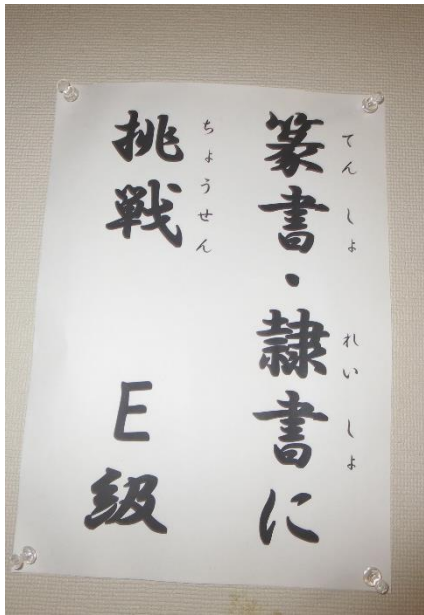 篆書・隷書に
てんしょ れいしょ
挑戦 E級
ちょうせん